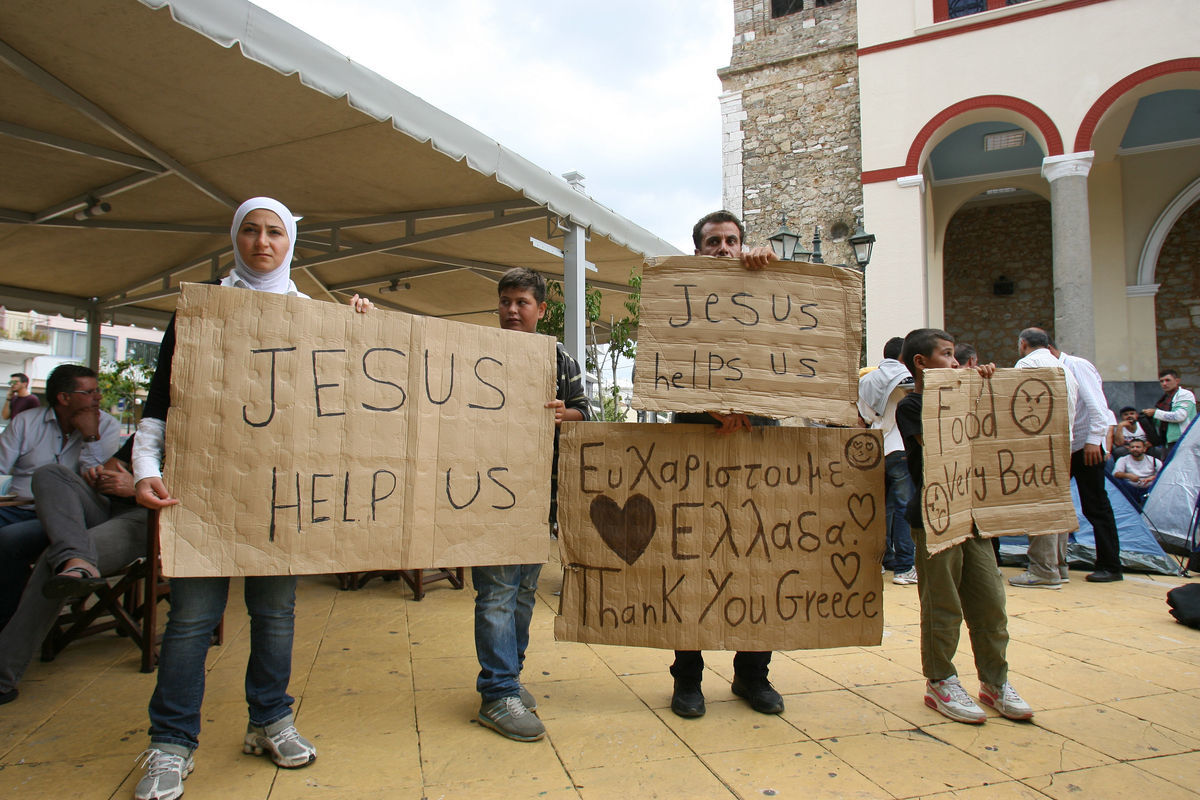 JESUS
HELP US
Jesus
helps us
Ευχαριστουμε
Ελλαδα.
Thank You Greece
Food
Very Bad